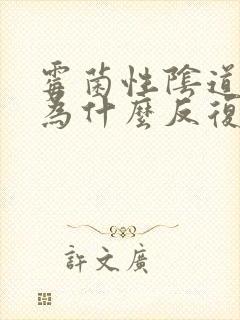 霉菌性陰道
為什麼反復
許文廣